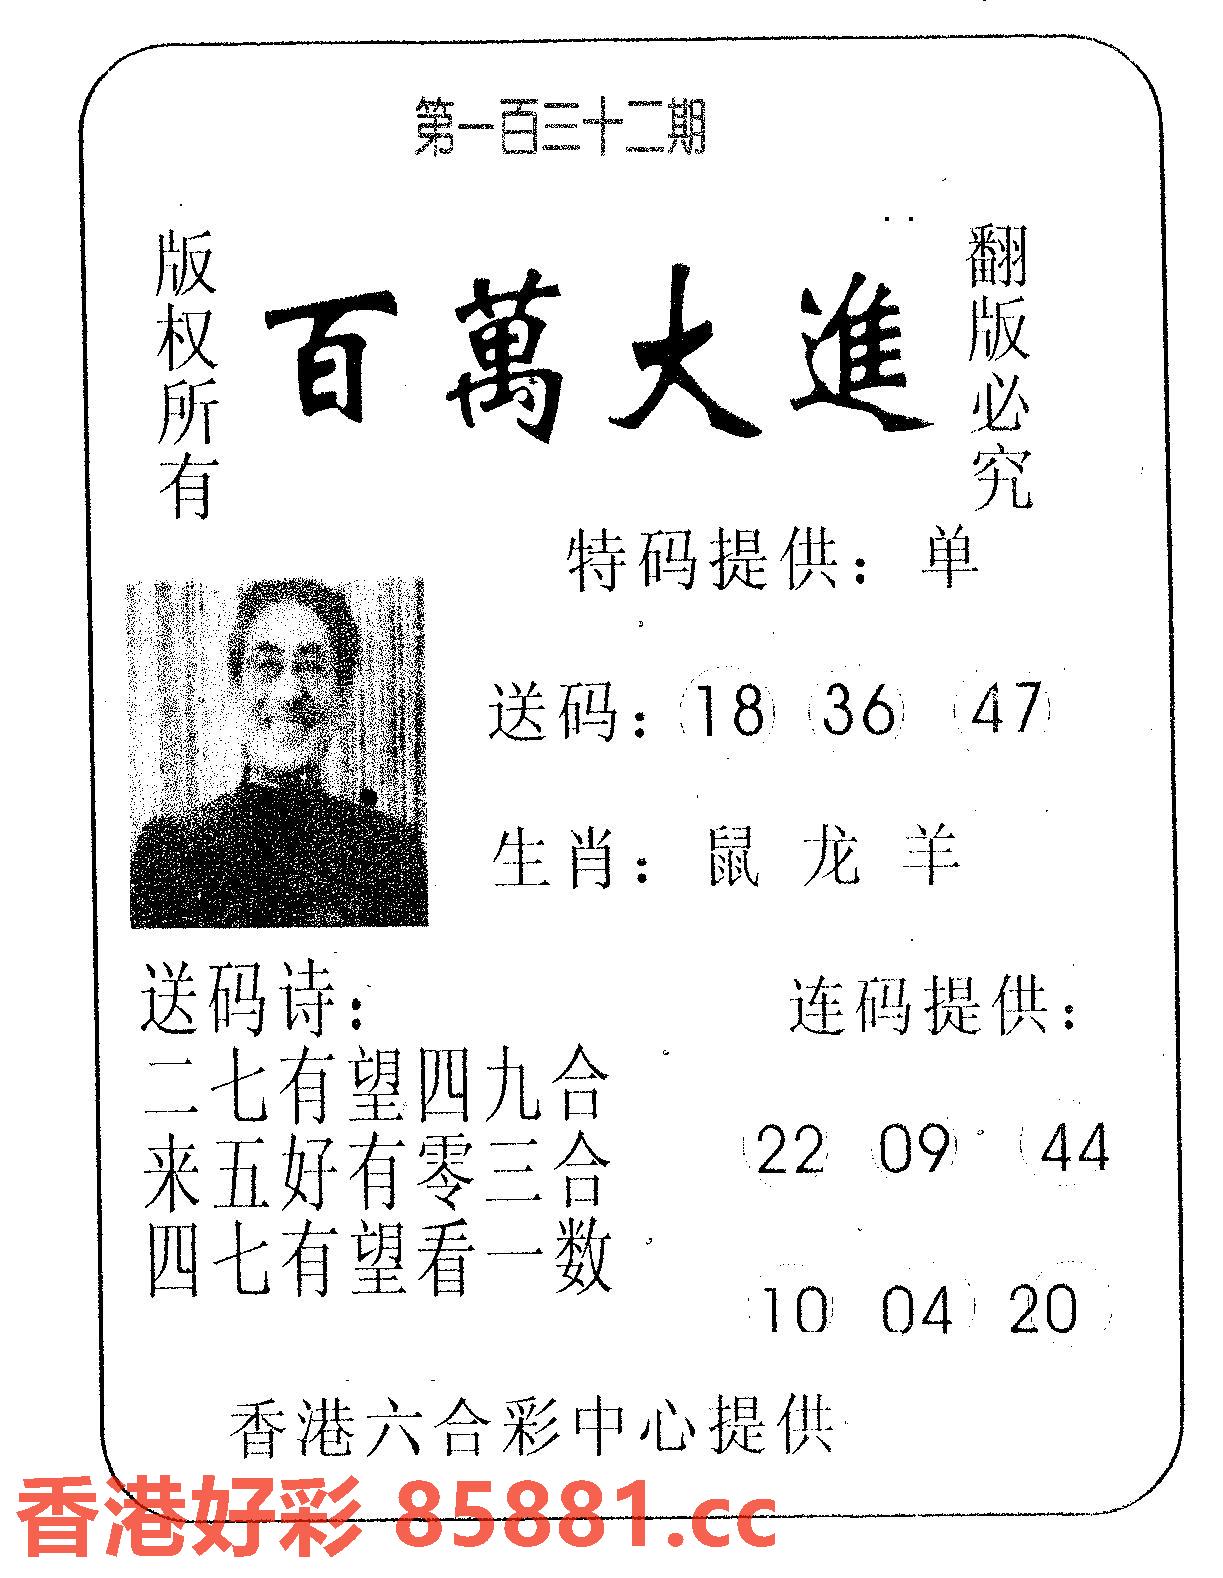 第一百三十二期
版权所有
百萬大進
翻版必究
特码提供：单
送码：18 36 47
生肖：鼠 龙 羊
送码诗：
二七有望四九合
来五好有零三合
四七有望看一数
连码提供：
22 09 44
10 04 20
香港六合彩中心提供
香港好彩 85881.cc